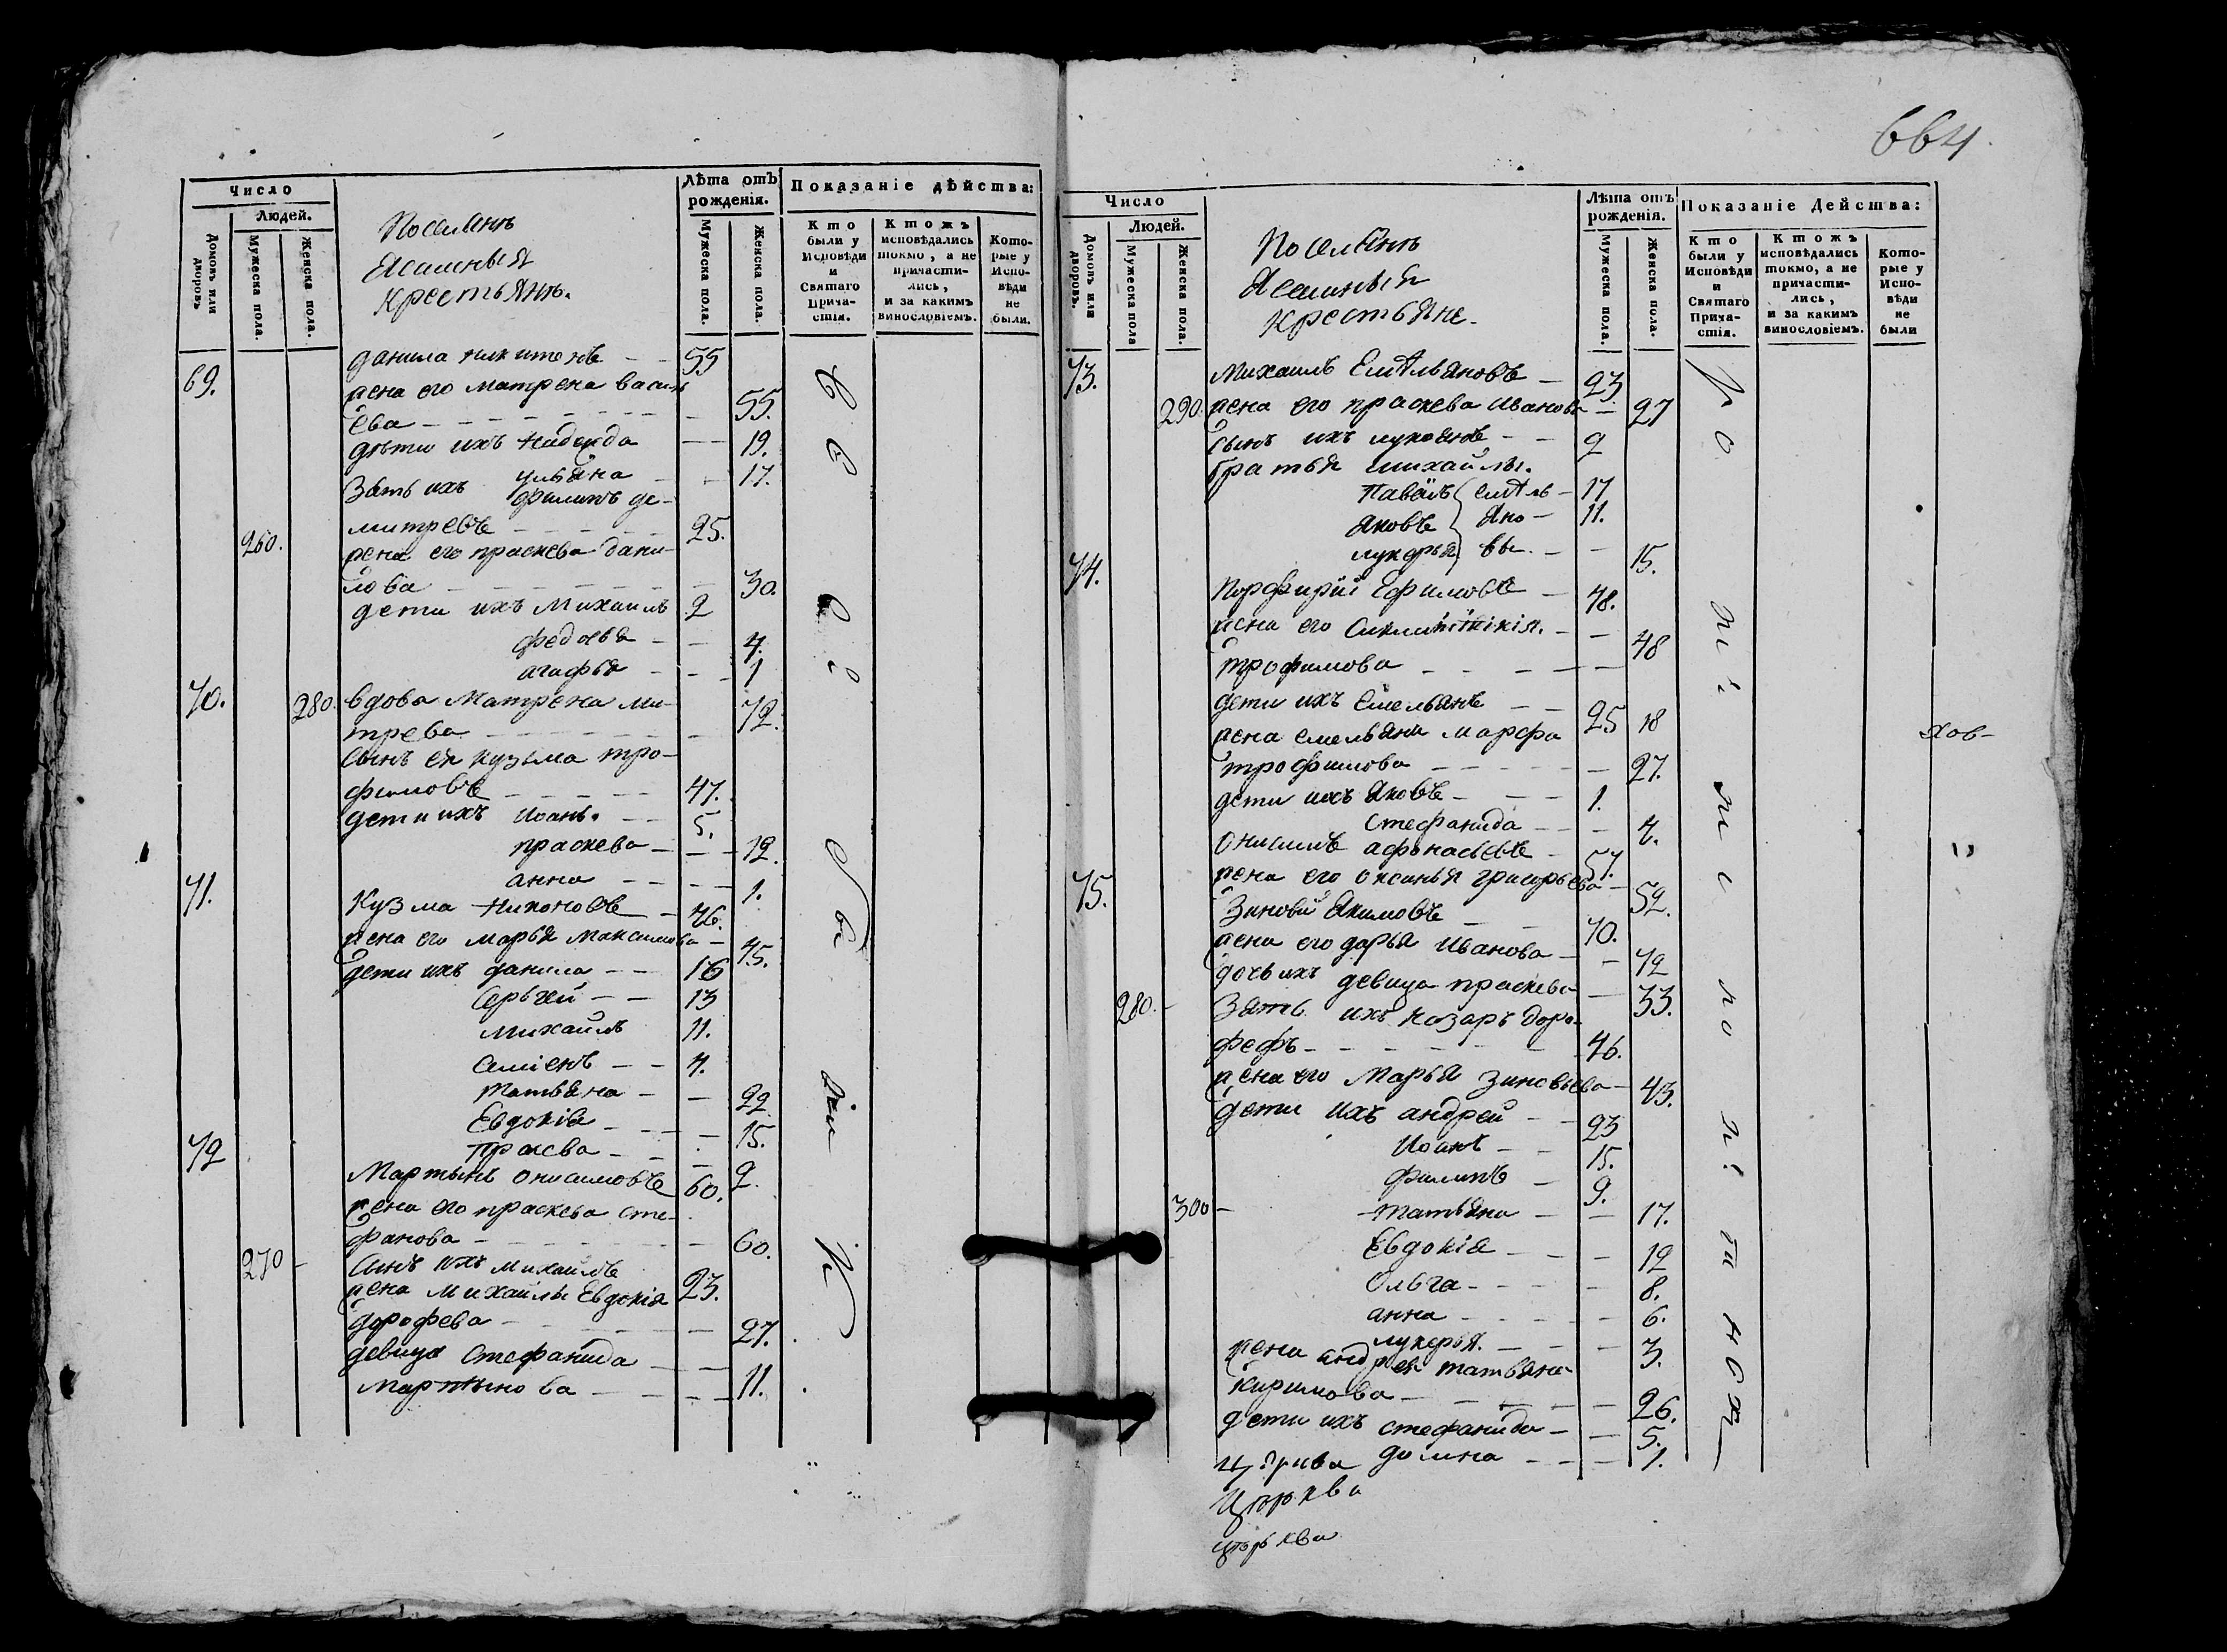 664
Число
Людей.
Домовъ или дворовъ
Мужеска пола.
Женска пола.
Поселянъ
Ясашныя
Крестьянъ.
Лѣта отъ рожденія.
Мужеска пола.
Женска пола.
Показаніе дѣйства:
Кто были у Исповѣди и Святаго Причастія.
Ктожъ исповѣдались токмо, а не причастились, и за какимъ винословіемъ.
Которые у Исповѣди не были.
данила никитенъ 55
69. жена его матрена василь
ева 55.
дѣти ихъ надежда 19.
ульяна 17.
Зять ихъ филипъ де-
260. митревъ 25.
жена его праскева дани-
лова 30.
дети ихъ Михаилъ 2
федосья 4.
агафья 1
70. 280. вдова Матрена ми-
трева 72.
сынъ ея кузьма тро-
фимовъ 47.
дети ихъ иоанъ. 5.
праскева 12.
анна 1.
71. Кузма никоновъ 46.
жена его марья максимова 45.
дети ихъ данила 16
Сергей 13
михаилъ 11.
симіенъ 4.
татьяна 22
Евдокія 15.
72 праскева 2.
Мартынъ онисимовъ 60.
жена его праскева сте-
фанова 60.
270 сынъ ихъ михаилъ 23.
жена михаилы Евдокія
дорофева 27.
девица Стефанида
мартынова 11.
Число
Людей.
Домовъ или дворовъ.
Мужеска пола
Женска пола.
Поселянъ
Ясашныя
Крестьяне.
Лѣта отъ рожденія.
Мужеска пола.
Женска пола.
Показаніе Действа:
Кто были у Исповѣди и Святаго Причастія.
Ктожъ исповѣдались токмо, а не причастились, и за какимъ винословіемъ.
Которые у Исповѣди не были
73. Михаилъ Емельяновъ 23
290. жена его праскева иванова 27
сынъ ихъ лукоянъ 2
братья михайлы.
Павелъ емель 17
яковъ яно 11.
лукерья вы. 15.
74. Порфирій Ефимовъ 48.
жена его
трофимова 48
дети ихъ емельянъ 25 18
жена емельяна марфа
трофимова 27.
дети ихъ яковъ 1.
Стефанида 4.
онисимъ афонасьевъ 57.
жена его оксинья григорьева 52.
75. Зиновий Якимовъ 70.
жена его дарья иванова 72
дочь ихъ девица праскева 33.
280. Зять ихъ назаръ доро-
фефъ 46.
жена его Марья зиновьева 43.
дети ихъ андрей 23
иоанъ 15.
филипъ 9.
300 татьяна 17.
Евдокія 12
Ольга 8.
анна 6.
лукерья. 3.
жена андрея татьяна
Кирилова 26.
дети ихъ стефанида 5.
домна 1.